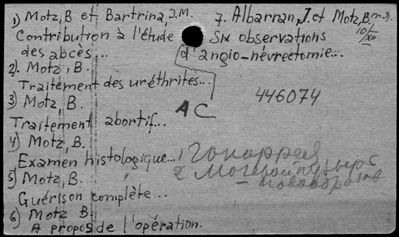 1) Motz, B et Bartrina, J.M.
Contribution à l'étude
des abcès...
2) Motz, B.
Traitement des uréthrites...
3) Motz, B.
Traitement abortif...
4) Motz, B.
Examen histologique...
5) Motz, B.
Guérison complète...
6) Motz B
A propos de l'opération.
7. Albarran, J. et Motz, B.
Six observations
d'angio-névrectomie...
10/XII
AC
446074
1 Гоноррея
2 Мочевой пузырь
– новообразов